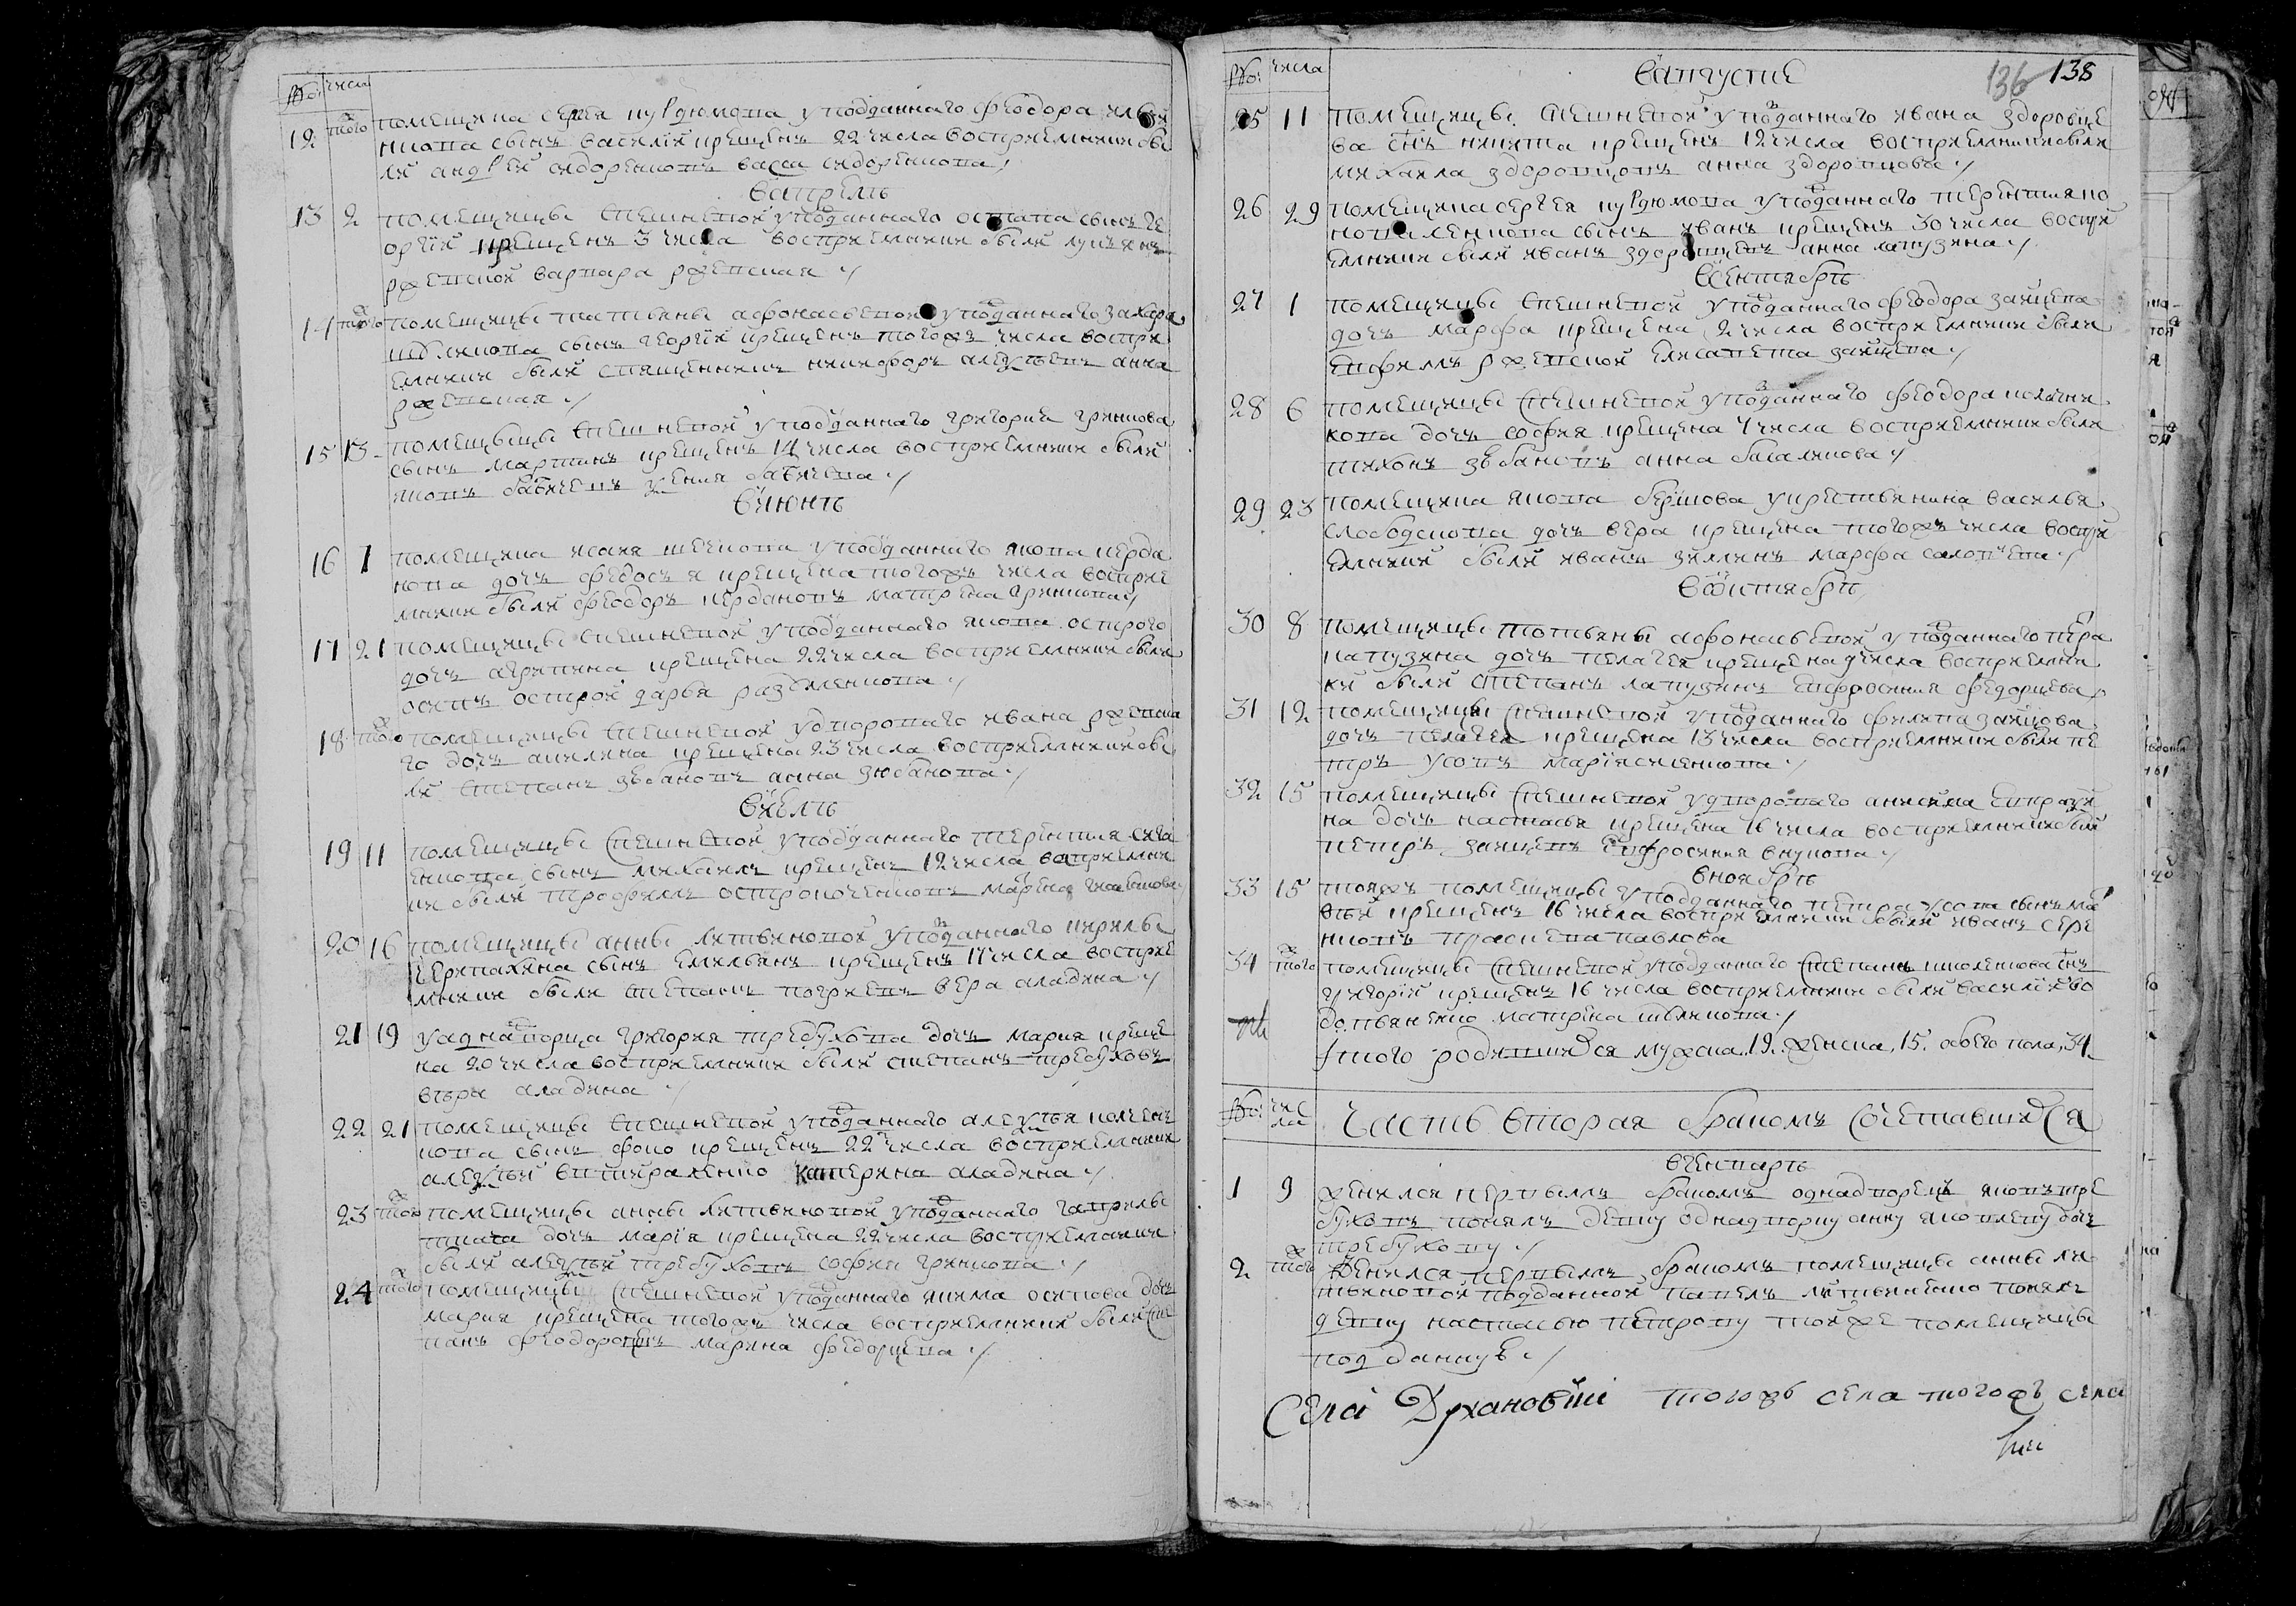 числа
12 того помещика сергея курдюмова у подданнаго феодора
кнкова сынъ василiй крещенъ 22 числа восприемники бы
ли андрей сидоренковъ васса сидоренкова
въ апрелъ
13 2 помещицы спешневой у подданнаго остапа сынъ ге
оргiй крещенъ 3 числа восприемники были лукьянъ
ржевской варвара ржевская
14 того помещицы татьяны афонасьевой у подданнаго захара
сынъ георгiй крещенъ тогожъ числа воспри
емники были священникъ никифоръ алеѯѣевъ анна
ржевская
15 13 помещицы спешневой у подданнаго григория гринкова
сынъ мартинъ крещенъ 14 числа восприемники были
яковъ бабичевъ ѯения бабичева
въ июнъ
16 1 помещика исаия шечкова у подданнаго якова кердa
нова дочь федосья крещена тогожъ числа восприе
мники были феодоръ кердановъ матрена гринкова
17 21 помещицы спешневой у подданнаго якова острого
дочь агрипина крещена 22 числа восприемники были
осипъ острой дарья
18 того помещицы спешневой у двороваго ивана ржевска
го дочь акилина крещена 23 числа восприемники бы
ли степанъ зюбановъ анна зюбанова
въ июлъ
19 11 помещицы спешневой у подданнаго терентия сига
енкова сынъ михаилъ крещенъ 12 числа восприемни
ки были трофимъ остроноченковъ марфа
20 16 помещицы анны литвиновой у подданнаго кирилы
еерипахина сынъ емельянъ крещенъ 17 числа восприе
мники были степанъ вера аладина
21 19 у аднадворца григория требухова дочь мария креще
на 20 числа восприемники были степанъ требуховъ
вѣра аладина
22 21 помещицы спешневой у подданнаго алеѯѣя
кова сынъ фока крещенъ 22 числа восприемники
алеѯѣй катерина аладина
23 того помещицы анны литвиновой у подданнаго гаврилы
ткача дочь марiя крещена 22 числа восприемники
были алеѯѣй требуховъ софия гринкова
24 того помещицы спешневой у подданнаго якима осипова дочь
мария крещена тогожъ числа восприемники были сте
панъ феодоровъ марина федорцева
числа въ августе 136 138
25 11 помещицы спешневой у подданнаго ивана здоровце
ва снъ никита крещенъ 12 числа восприемники были
михаила здоровцовъ анна здоровцова
26 29 помещика сергея курдюмова у подданнаго терентия ко
новаленкова сынъ иванъ крещенъ 30 числа воспри
емники были иванъ здоровцевъ анна лапузина
въ сентябръ
27 1 помещицы спешневой у подданнаго феодора зайцева
дочь марфа крещена 2 числа восприемники были
ефимъ ржевской елисавета зайцева
28 6 помещицы спешневой у подданнаго феодора
кова дочь софия крещена 7 числа восприемники были
тихонъ зюбановъ анна бакаликова
29 23 помещика якова бершова у крестьянина василья
слободскова дочь вера крещена тогожъ числа воспри
емники были иванъ зиминъ марфа саловчева
въ октябръ
30 8 помещицы тотьяны афонасьевой у подданнаго петра
лапузина дочь пелагея крещена 9 числа восприемни
ки были степанъ лапузинъ евфросиния федорцева
31 12 помещицы спешневой у подданнаго филипа зайцова
дочь пелагея крещена 13 числа восприемники были пе
тръ усовъ марiя
32 15 помещицы спешневой у двороваго анисима
на дочь настасья крещена 16 числа восприемники были
петръ зайцевъ евфросиния внукова
въ ноябръ
33 15 тояжъ помещицы у подданнаго петра усова сынъ ма
вѣй крещенъ 16 числа восприемники были иванъ сере
нковъ прасковья павлова
34 того помещицы спешневой у подданнаго степана школенкова снъ
григорiй крещенъ 16 числа восприемники были василiй во
довяненко матрена шлякова
Итого родившихся мужеска, 19. женска, 15. обоего пола, 34.
чис
ла Часть вторая бракомъ сочетавшихся
въ генваръ
1 9 женился первымъ бракомъ однадворецъ яковъ тре
буховъ понялъ девку однадворку анну яковлеву дочь
требухову
2 того женился первымъ бракомъ помещицы анны ли
твиновой подданной павелъ литвиненко понялъ
девку настасью петрову тойже помещицы
подданную
села тогожъ села тогожъ села